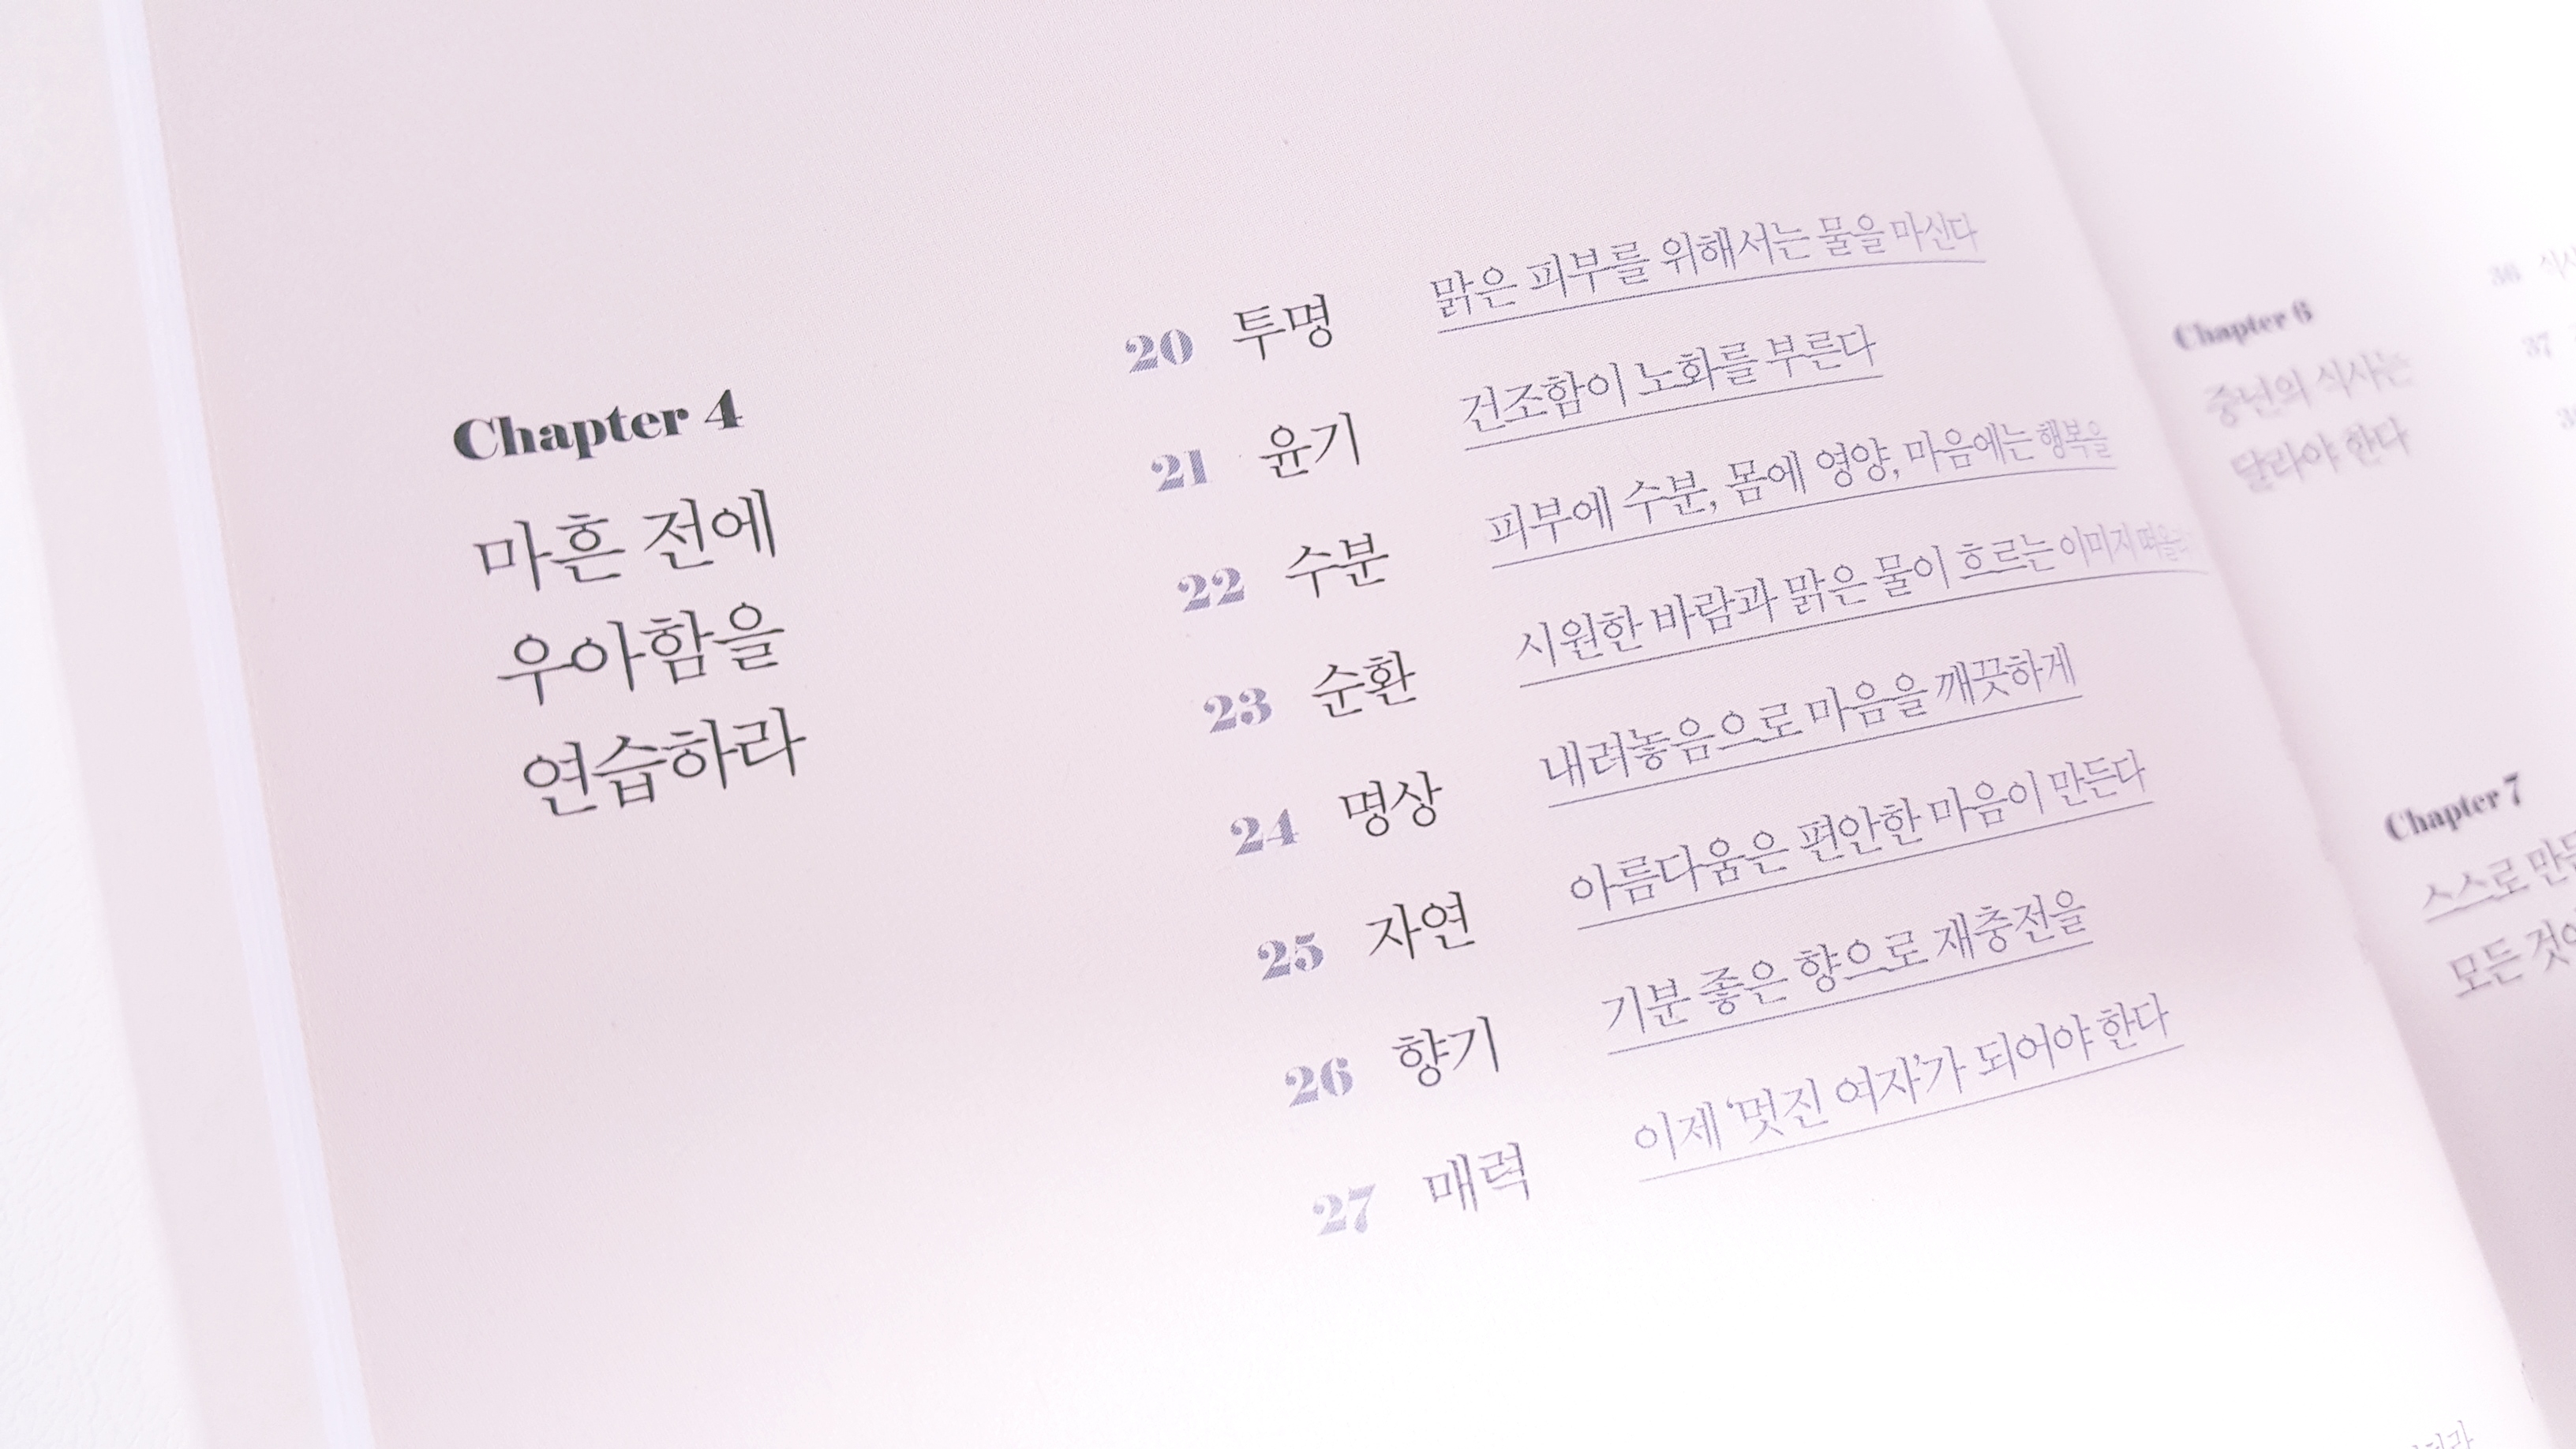 Chapter 4
마흔 전에
우아함을
연습하라
20 투명 맑은 피부를 위해서는 물을 마신다
21 윤기 건조함이 노화를 부른다
22 수분 피부에 수분, 몸에 영양, 마음에는 행복을
23 순환 시원한 바람과 맑은 물이 흐르는 이미지
24 명상 내려놓음으로 마음을 깨끗하게
25 자연 아름다움은 편안한 마음이 만든다
26 향기 기분 좋은 향으로 재충전을
27 매력 이제 ‘멋진 여자’가 되어야 한다
Chapter 6
중년의 식사는
달라야 한다
36
37
Chapter 7
스스로
모든